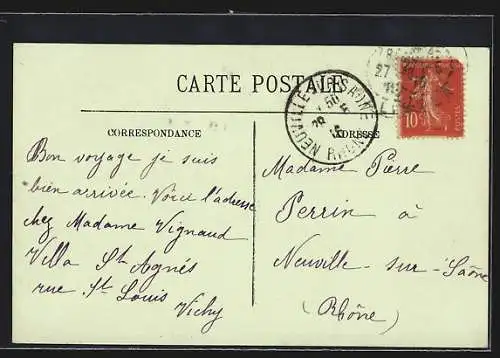 CARTE POSTALE
CORRESPONDANCE
ADRESSE
NEUVILLE-SUR-SAONE
RHONE
10
Bon voyage je suis
bien arrivée. Voici l'adresse
chez Madame Vignaud
Villa St Agnés
rue St Louis
Vichy
Madame Pierre
Perrin à
Neuville-sur-Saône
(Rhône)